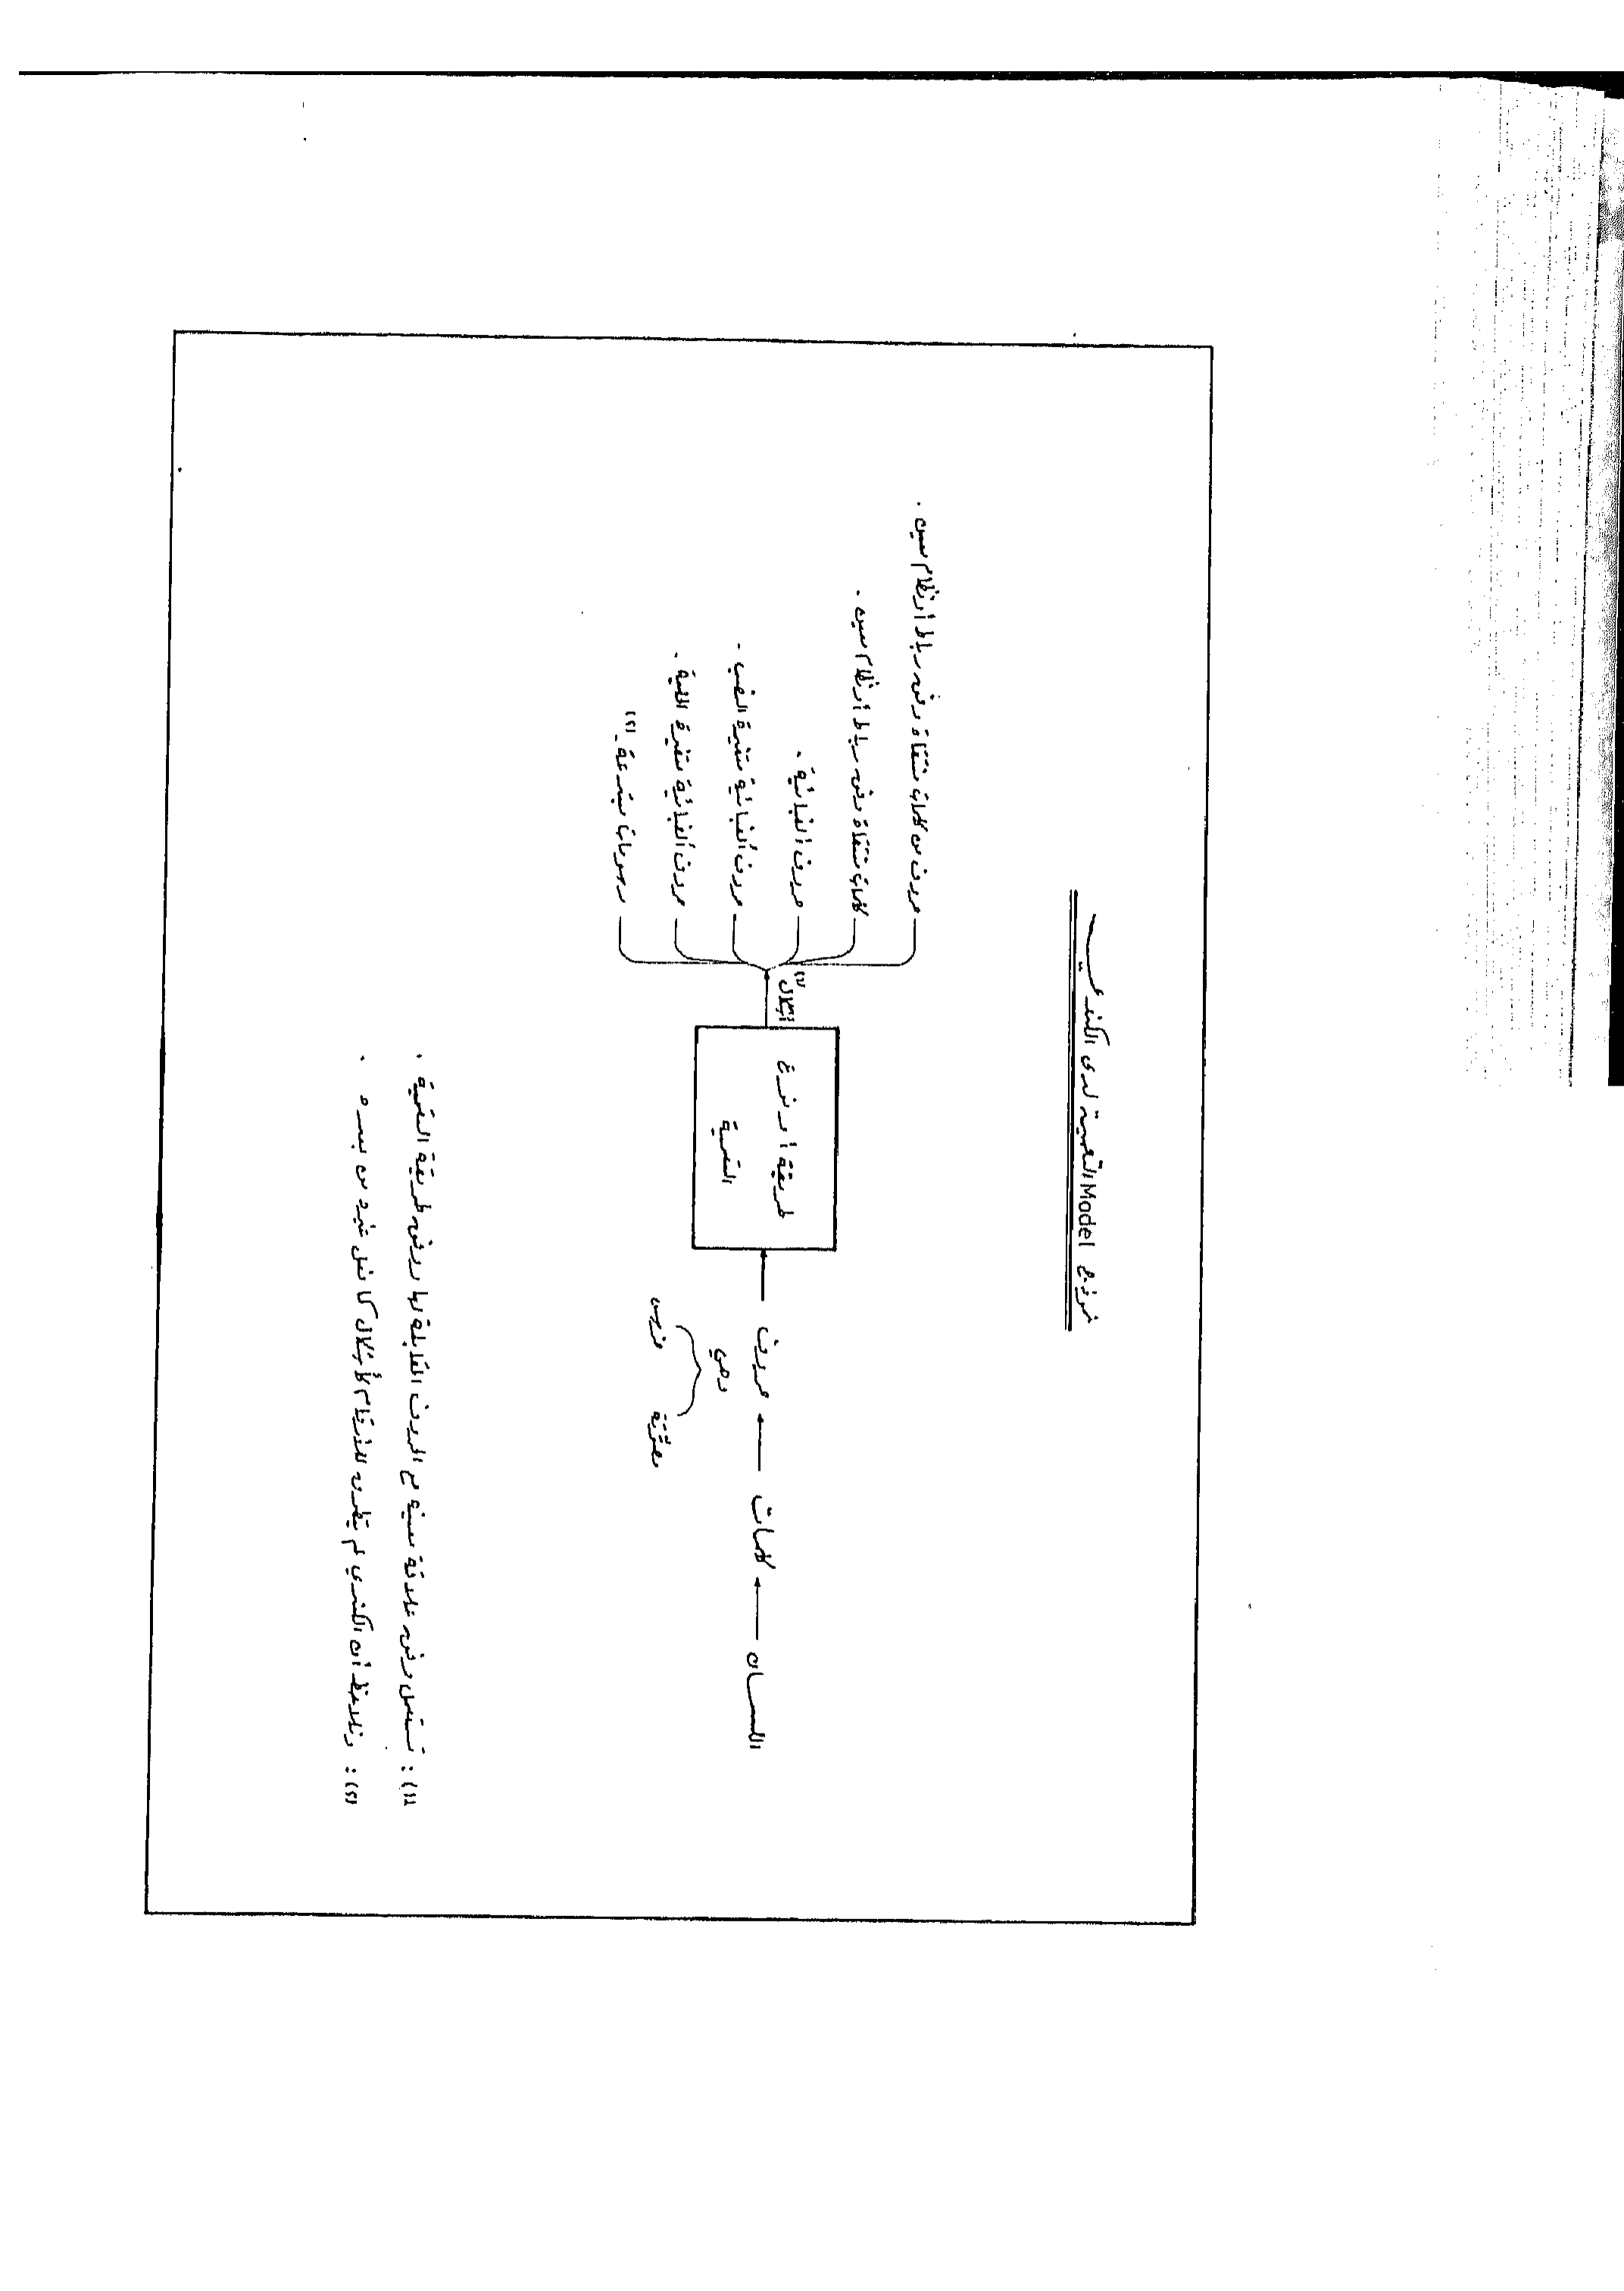 نموذج Model التعمية لدى الكندي
اللسان
كلمات
حروف
وهي
مصوّتة
خرس
طريقة أو نوع
التعمية
أشكال (١)
حروف من كلمات منتقاة وفق رباط أو نظام معين .
كلمات منتقاة وفق رباط أو نظام معين .
حروف ألفبائية .
حروف ألفبائية متغيرة النصب .
حروف ألفبائية متغيرة الحلية .
رموز مبتدعة . (٢)
(١) : تستعمل وفق علاقة معينة مع الحروف المقابلة لها وفق طريقة التعمية .
(٢) : ونلاحظ أن الكندي لم يتطرق للأرقام كأشكال كما فعل غيره من بعده .